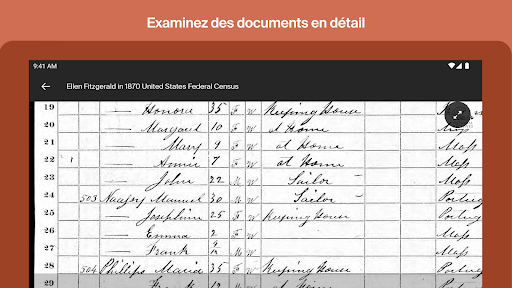 Examinez des documents en détail
9:41 AM
Ellen Fitzgerald in 1870 United States Federal Census
19 — Honora 35 F W Keeping House
20 — Margaret 10 F W at Home Mass
21 — Mary 9 F W at Home Mass
22 1 — Annie 7 F W at Home Mass
23 — John 22 M W Sailor Mass
24 503 Manuel 30 M W Sailor Portug
25 — Josephine 25 F W Keeping House Portug
26 — Emma 2 F W Mass
27 — Frank M W Mass
28 504 Phillips Maria 35 F W Keeping House Portug
Frank 12 M W